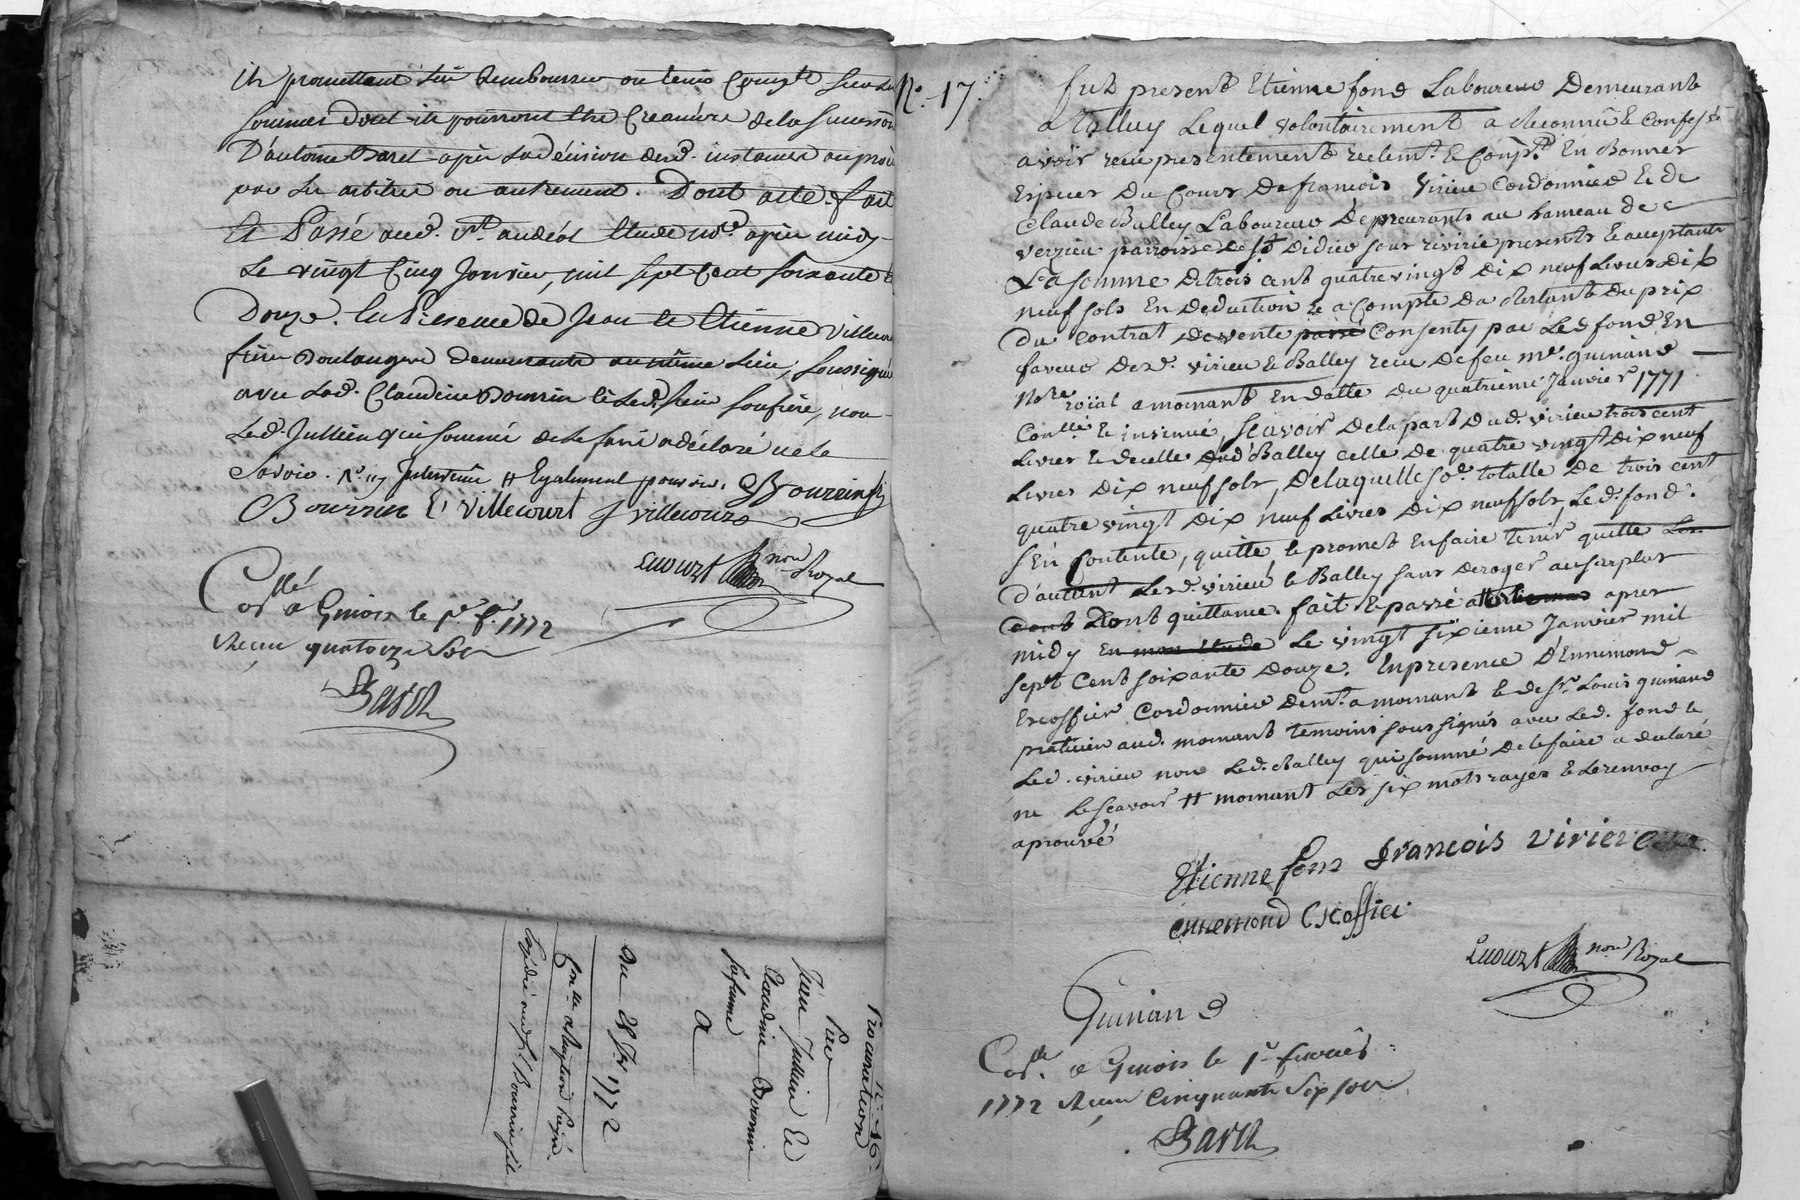 ils promettant lui rembourser ou tenir compte sur les
sommes dont ils pourront etre creanciers de la succession
D'antoine Baret apres la decision desd. instances ou procès
par les arbitres ou autrement. Dont acte. fait
Et Passé aud. St. andéol Etude apres midy
Le vingt Cinq Janvier, mil sept Cent soixante &
Douze. En Presence de Jean et Etienne villecourt
freres Boulangers demeurants au même Lieu, soussignés
avec lad. Claudine Bourrin et led. sieur son frere, non
Led. Jullien qui sommé de le faire a déclaré ne le
scavoir.
Bourrin E villecourt J villecourt
not. Royal
Collé
Con. a Gmois le pr. f. 1772
Recu quatorze Sols
Barch
No. 16.
Procuration
Par
Jean Jullien Et
Claudine Bourrin
sa femme
A
Du 25 Jr. 1772
Expedié aud. Sr. Bourrin fils
No. 17.
fut present Etienne fond Laboureur Demeurant
a talluy Lequel volontairement a Reconnu & Confessé
avoir recu presentement reelemt. & Compt. En Bonnes
Especes Du Cours De françois Virieu Cordonnier & de
Claude Balley Laboureur Demeurants au hameau de
verzieu parroisse de St. Didier sous rivirie presents & acceptants
La somme de trois cent quatre vingt dix neuf Livres dix
neuf sols En Deduction & a Compte Du Restant Du prix
Du Contrat De vente passé Consenty par Led. fond En
faveur Desd. virieu & Balley recu De feu me. guinand
Notre. roïal a mornant En datte Du quatrieme Janvier 1771
Conllé. & insinué, scavoir De la part Dud. virieu trois cent
Livres & de celle Dud Balley celle de quatre vingt Dix neuf
Livres Dix neuf sols, De laquelle se. totalle De trois cent
quatre vingt Dix neuf Livres Dix neuf sols, Led. fond.
S'en Contente, quitte & promet En faire tenir quitte
D'autant Lesd. virieu & Balley sans Deroger au surplus
Dont Dont quittance. fait & passé apres
midy En mon Etude Le vingt sixieme Janvier mil
sept Cent soixante Douze. En presence D'Ennemond
Escoffier Cordonnier Demt. a mornant & de sr. Louis guinand
praticien aud. mornant temoins soussignés avec Led. fond &
Led. virieu non Led. Balley qui sommé De le faire a declaré
ne Le Scavoir # mornant Les six mots rayés & Le renvoy
aprouvé
Etienne fond françois Virieu
ennemond Escoffier
not. Royal
Guinand
Con. a Gmois le 1r. fevrier
1772 Recu Cinquante Six sous
Barch